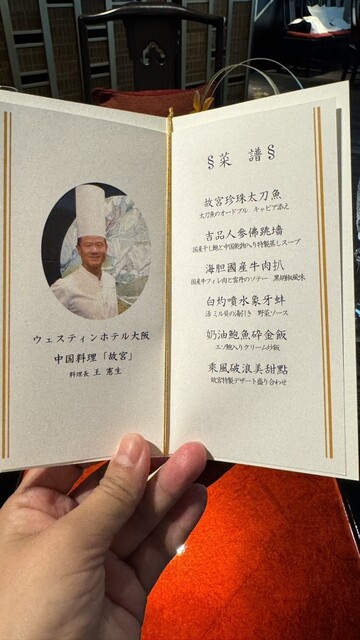 ウェスティンホテル大阪
中国料理「故宮」
料理長 王 憲生
§ 菜 譜 §
故宮珍珠太刀魚
太刀魚のオードブル キャビア添え
吉品人參佛跳墻
国産干し鮑と中国朝鮮人参入り特製蒸しスープ
海胆國產牛肉扒
国産牛フィレ肉と雲丹のソテー 黒胡椒風味
白灼噴水象牙蚌
活ミル貝の湯引き 野菜ソース
奶油鮑魚碎金飯
エゾ鮑入りクリーム炒飯
乘風破浪美甜點
故宮特製デザート盛り合わせ